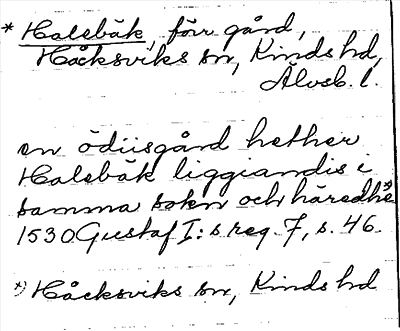 * Halsbäk, förr gård,
Håcksviks sn, Kinds hd,
Älvsb. l.
en ödiisgård hether
Halsbäk liggiandis i
samma sokn och häredhe*)
1530 Gustaf I:s reg. 7, s. 46.
*) Håcksviks sn, Kinds hd